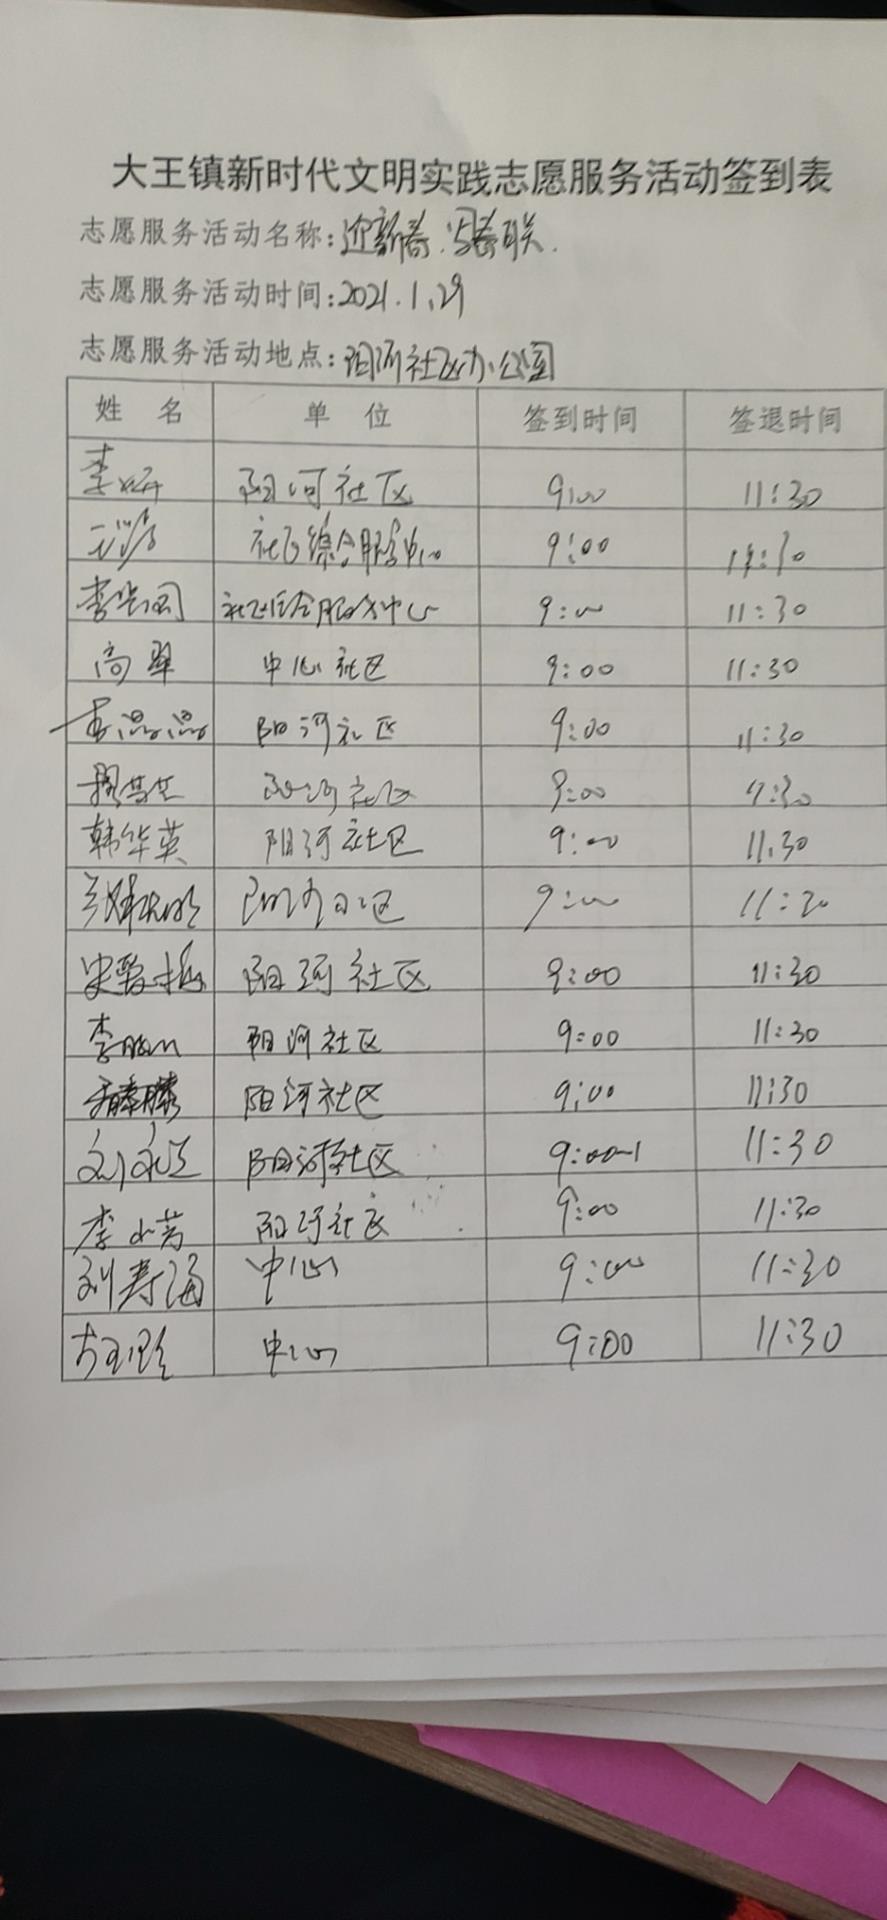 大王镇新时代文明实践志愿服务活动签到表
志愿服务活动名称:迎新春.写春联.
志愿服务活动时间:2021.1.29
志愿服务活动地点:阳河社区办公园
姓 名 单 位 签到时间 签退时间
李妍 阳河社区 9:00 11:30
社区综合服务中心 9:00
李 社区综合服务中心 9:00 11:30
高翠 中心社区 9:00 11:30
李晶晶 阳河社区 9:00 11:30
阳河社区 9:00
韩华英 阳河社区 9:00 11:30
9:00
阳河社区 9:00 11:30
李 阳河社区 9:00 11:30
阳河社区 9:00 11:30
刘 阳河社区 9:00 11:30
李小芳 阳河社区 9:00 11:30
刘寿海 中心 9:00 11:30
中心 9:00 11:30